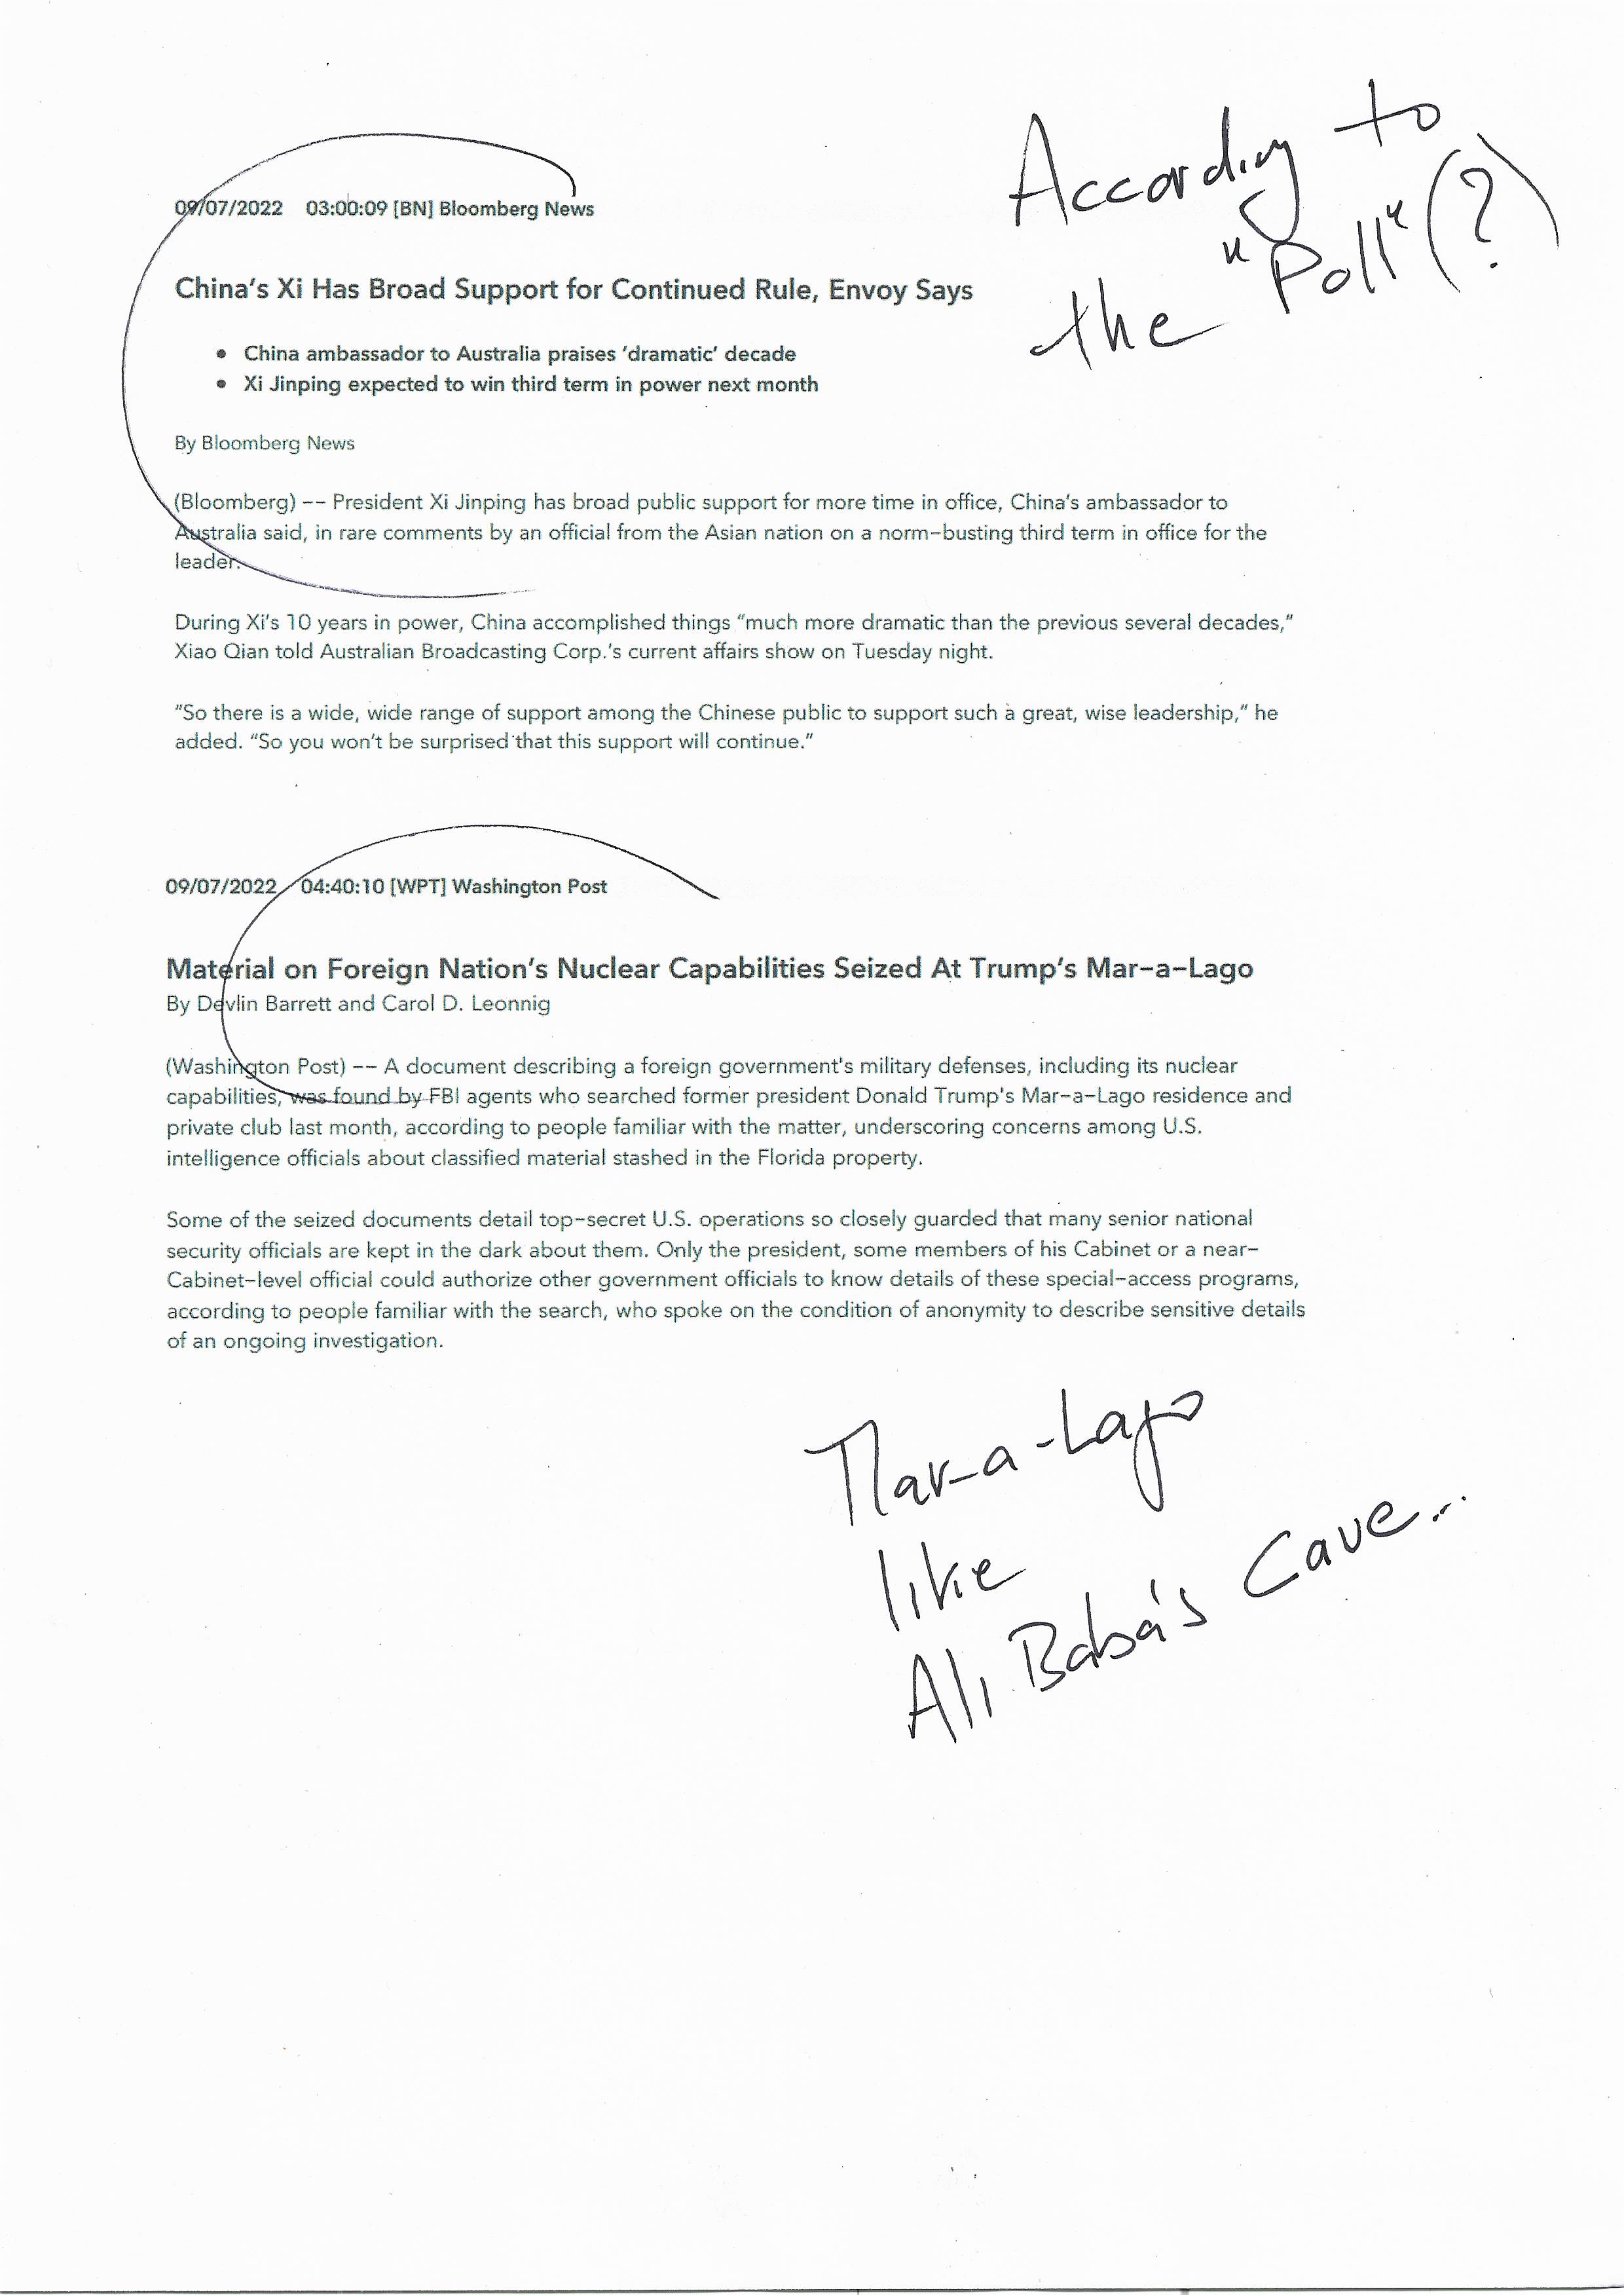 According to
the "Poll" (?)
09/07/2022 03:00:09 [BN] Bloomberg News
China's Xi Has Broad Support for Continued Rule, Envoy Says
• China ambassador to Australia praises 'dramatic' decade
• Xi Jinping expected to win third term in power next month
By Bloomberg News
(Bloomberg) -- President Xi Jinping has broad public support for more time in office, China's ambassador to
Australia said, in rare comments by an official from the Asian nation on a norm-busting third term in office for the
leader.
During Xi's 10 years in power, China accomplished things "much more dramatic than the previous several decades,"
Xiao Qian told Australian Broadcasting Corp.'s current affairs show on Tuesday night.
"So there is a wide, wide range of support among the Chinese public to support such a great, wise leadership," he
added. "So you won't be surprised that this support will continue."
09/07/2022 04:40:10 [WPT] Washington Post
Material on Foreign Nation's Nuclear Capabilities Seized At Trump's Mar-a-Lago
By Devlin Barrett and Carol D. Leonnig
(Washington Post) -- A document describing a foreign government's military defenses, including its nuclear
capabilities, was found by FBI agents who searched former president Donald Trump's Mar-a-Lago residence and
private club last month, according to people familiar with the matter, underscoring concerns among U.S.
intelligence officials about classified material stashed in the Florida property.
Some of the seized documents detail top-secret U.S. operations so closely guarded that many senior national
security officials are kept in the dark about them. Only the president, some members of his Cabinet or a near-
Cabinet-level official could authorize other government officials to know details of these special-access programs,
according to people familiar with the search, who spoke on the condition of anonymity to describe sensitive details
of an ongoing investigation.
Mar-a-Lago
like
Ali Baba's Cave...